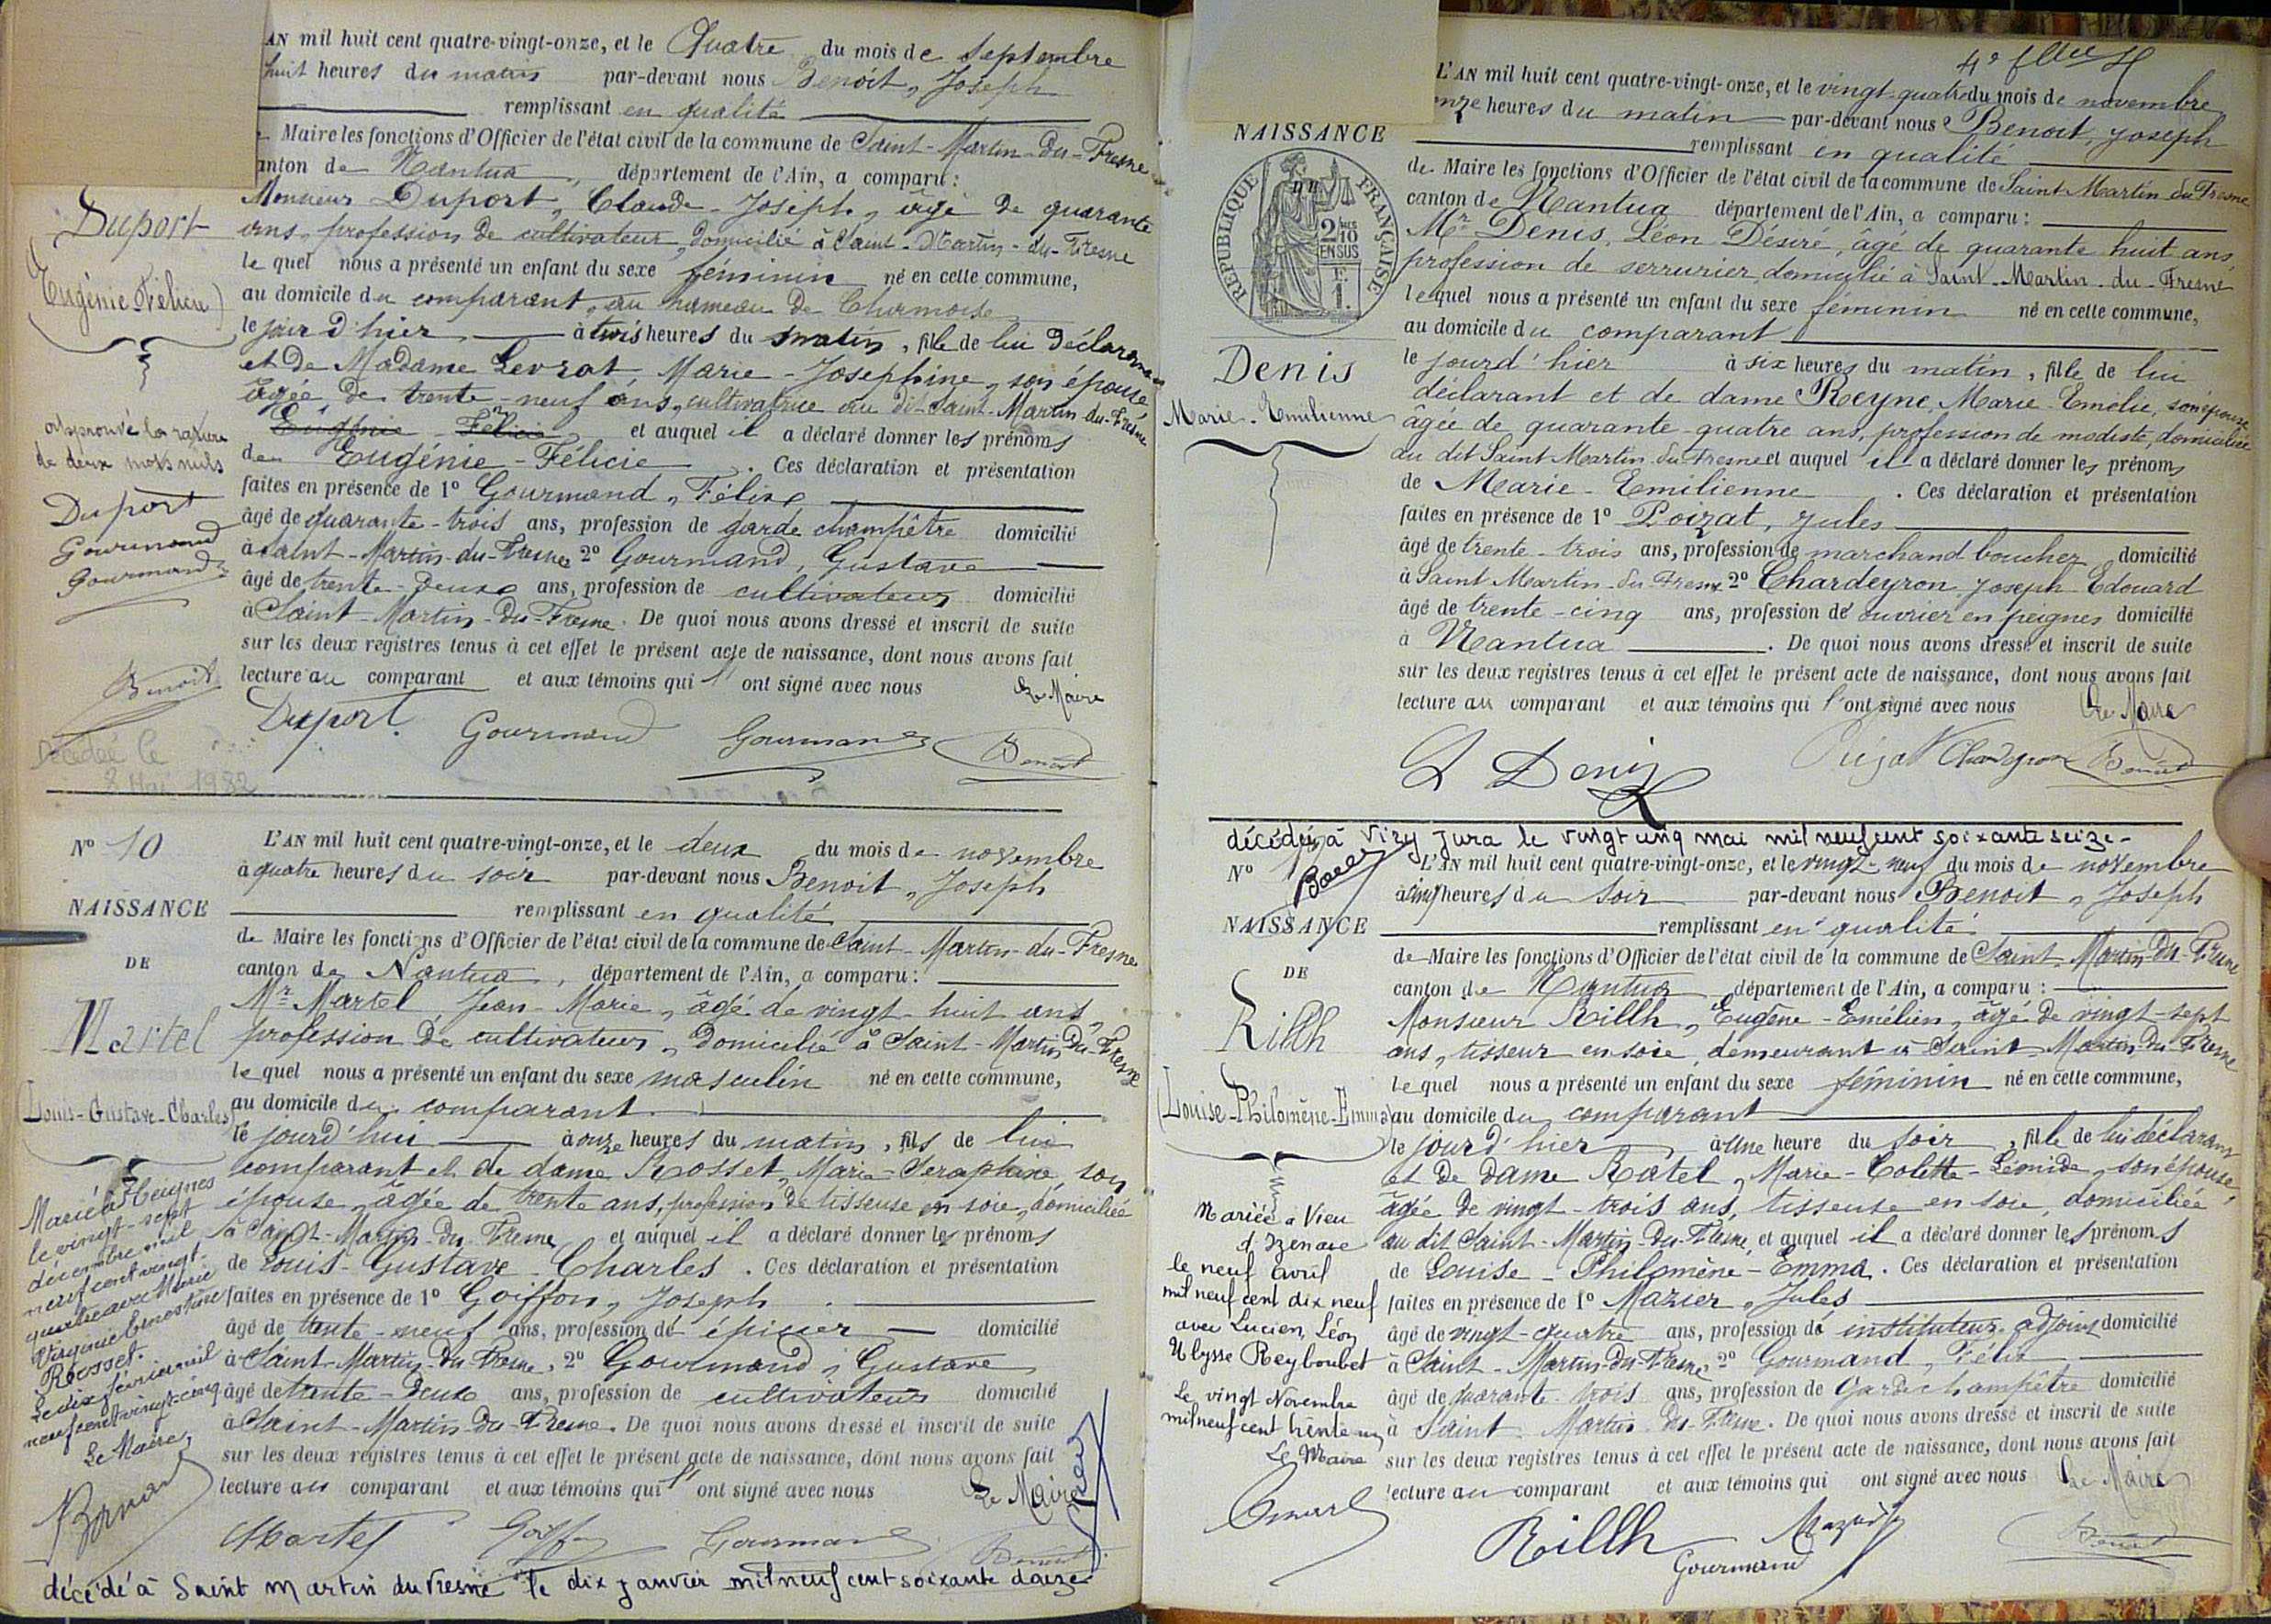 AN mil huit cent quatre-vingt-onze, et le Quatre du mois de septembre
huit heures du matin par-devant nous Benoit, Joseph
remplissant en qualité
Maire les fonctions d'Officier de l'état civil de la commune de Saint-Martin-du-Fresne
anton de Nantua, département de l'Ain, a comparu :
Monsieur Duport, Claude-Joseph, âgé de quarante
ans, profession de cultivateur, domicilié à Saint-Martin-du-Fresne
le quel nous a présenté un enfant du sexe féminin né en cette commune,
au domicile du comparant, au hameau de
le jour d'hier à trois heures du matin, fille de lui déclarant
et de Madame Levrat, Marie-Josephine, son épouse
âgée de trente-neuf ans, cultivatrice au dit Saint-Martin-du-Fresne
Eugénie Félicie et auquel il a déclaré donner les prénoms
de Eugénie-Félicie. Ces déclaration et présentation
faites en présence de 1º Gourmand, Félix
âgé de quarante-trois ans, profession de garde champêtre domicilié
à Saint-Martin-du-Fresne 2º Gourmand, Gustave
âgé de trente-deux ans, profession de cultivateur domicilié
à Saint-Martin-du-Fresne. De quoi nous avons dressé et inscrit de suite
sur les deux registres tenus à cet effet le présent acte de naissance, dont nous avons fait
lecture au comparant et aux témoins qui l'ont signé avec nous Le Maire
Duport Gourmand Gourmand Benoit
Duport
Eugénie-Félicie
approuvé la rature
de deux mots nuls
Duport
Gourmand
Gourmand
Benoit
Décédée le
8 Mai 1982
Nº 10
NAISSANCE
DE
Martel
Louis-Gustave-Charles
Marié à Ceignes
le vingt-sept
décembre mil
neuf cent vingt-
quatre avec Marie
Virginie Ernestine
Rosset.
Le dix février mil
neuf cent vingt-cinq
Le Maire,
L'AN mil huit cent quatre-vingt-onze, et le deux du mois de novembre
à quatre heures du soir par-devant nous Benoit, Joseph
remplissant en qualité
de Maire les fonctions d'Officier de l'état civil de la commune de Saint-Martin-du-Fresne
canton de Nantua, département de l'Ain, a comparu :
Mr Martel Jean-Marie, âgé de vingt-huit ans,
profession de cultivateur, domicilié à Saint-Martin-du-Fresne
le quel nous a présenté un enfant du sexe masculin né en cette commune,
au domicile du comparant
le jourd'hui à onze heures du matin, fils de lui
comparant et de dame Rosset, Marie-Seraphine, son
épouse, âgée de trente ans, profession de tisseuse en soie, domiciliée
à Saint-Martin-du-Fresne, et auquel il a déclaré donner les prénoms
de Louis-Gustave-Charles. Ces déclaration et présentation
faites en présence de 1º Goiffon, Joseph
âgé de trente-neuf ans, profession de épicier domicilié
à Saint-Martin-du-Fresne, 2º Gourmand, Gustave
âgé de trente-deux ans, profession de cultivateur domicilié
à Saint-Martin-du-Fresne. De quoi nous avons dressé et inscrit de suite
sur les deux registres tenus à cet effet le présent acte de naissance, dont nous avons fait
lecture au comparant et aux témoins qui l'ont signé avec nous Le Maire
Martel Goiff Gourmand Benoit
décédé à Saint martin du Fresne le dix janvier mil neuf cent soixante douze
4e
L'AN mil huit cent quatre-vingt-onze, et le vingt-quatre du mois de novembre
onze heures du matin par-devant nous Benoit, Joseph
remplissant en qualité
de Maire les fonctions d'Officier de l'état civil de la commune de Saint Martin du Fresne
canton de Nantua département de l'Ain, a comparu :
Mr Denis, Léon Désiré, âgé de quarante huit ans,
profession de serrurier, domicilié à Saint-Martin-du-Fresne
lequel nous a présenté un enfant du sexe féminin né en cette commune,
au domicile du comparant
le jourd'hier à six heures du matin, fille de lui
déclarant et de dame Reyne, Marie-Emélie, son épouse,
âgée de quarante-quatre ans, profession de modiste, domiciliée
au dit Saint Martin du Fresne et auquel il a déclaré donner les prénoms
de Marie-Emilienne. Ces déclaration et présentation
faites en présence de 1º Poizat, Jules
âgé de trente-trois ans, profession de marchand boucher domicilié
à Saint Martin-du-Fresne 2º Chardeyron Joseph Edouard
âgé de trente-cinq ans, profession de ouvrier en peignes domicilié
à Nantua. De quoi nous avons dressé et inscrit de suite
sur les deux registres tenus à cet effet le présent acte de naissance, dont nous avons fait
lecture au comparant et aux témoins qui l'ont signé avec nous Le Maire
L Denis Chardeyron Benoit
NAISSANCE
DE
RÉPUBLIQUE FRANÇAISE
2/10 EN SUS
Denis
Marie-Emilienne
décédée à Viry Jura le vingt cinq mai mil neuf cent soixante seize-
Nº
NAISSANCE
DE
Rillh
(Louise-Philomène-Emma)
Mariée à Vieu
d'Izenave
le neuf avril
mil neuf cent dix neuf
avec Lucien, Léon
Ulysse Reyboubet
Le vingt Novembre
mil neuf cent trente un
Le Maire
L'AN mil huit cent quatre-vingt-onze, et le vingt-neuf du mois de novembre
à cinq heures du soir par-devant nous Benoit, Joseph
remplissant en qualité
de Maire les fonctions d'Officier de l'état civil de la commune de Saint-Martin-du-Fresne
canton de Nantua département de l'Ain, a comparu :
Monsieur Rillh, Eugène-Emélien, âgé de vingt-sept
ans, tisseur en soie, demeurant à Saint-Martin-du-Fresne
lequel nous a présenté un enfant du sexe féminin né en cette commune,
au domicile du comparant
le jourd'hier, à une heure du soir, fille de lui déclarant
et de dame Ratel, Marie-Colette-Léonide, son épouse,
âgée de vingt-trois ans, tisseuse en soie, domiciliée
au dit Saint-Martin-du-Fresne, et auquel il a déclaré donner les prénoms
de Louise-Philomène-Emma. Ces déclaration et présentation
faites en présence de 1º Mazier, Jules
âgé de vingt-quatre ans, profession de instituteur-adjoint domicilié
à Saint-Martin-du-Fresne, 2º Gourmand, Félix
âgé de quarante-trois ans, profession de garde champêtre domicilié
à Saint Martin-du-Fresne. De quoi nous avons dressé et inscrit de suite
sur les deux registres tenus à cet effet le présent acte de naissance, dont nous avons fait
lecture au comparant et aux témoins qui ont signé avec nous Le Maire
Rillh Gourmand Mazier Benoit